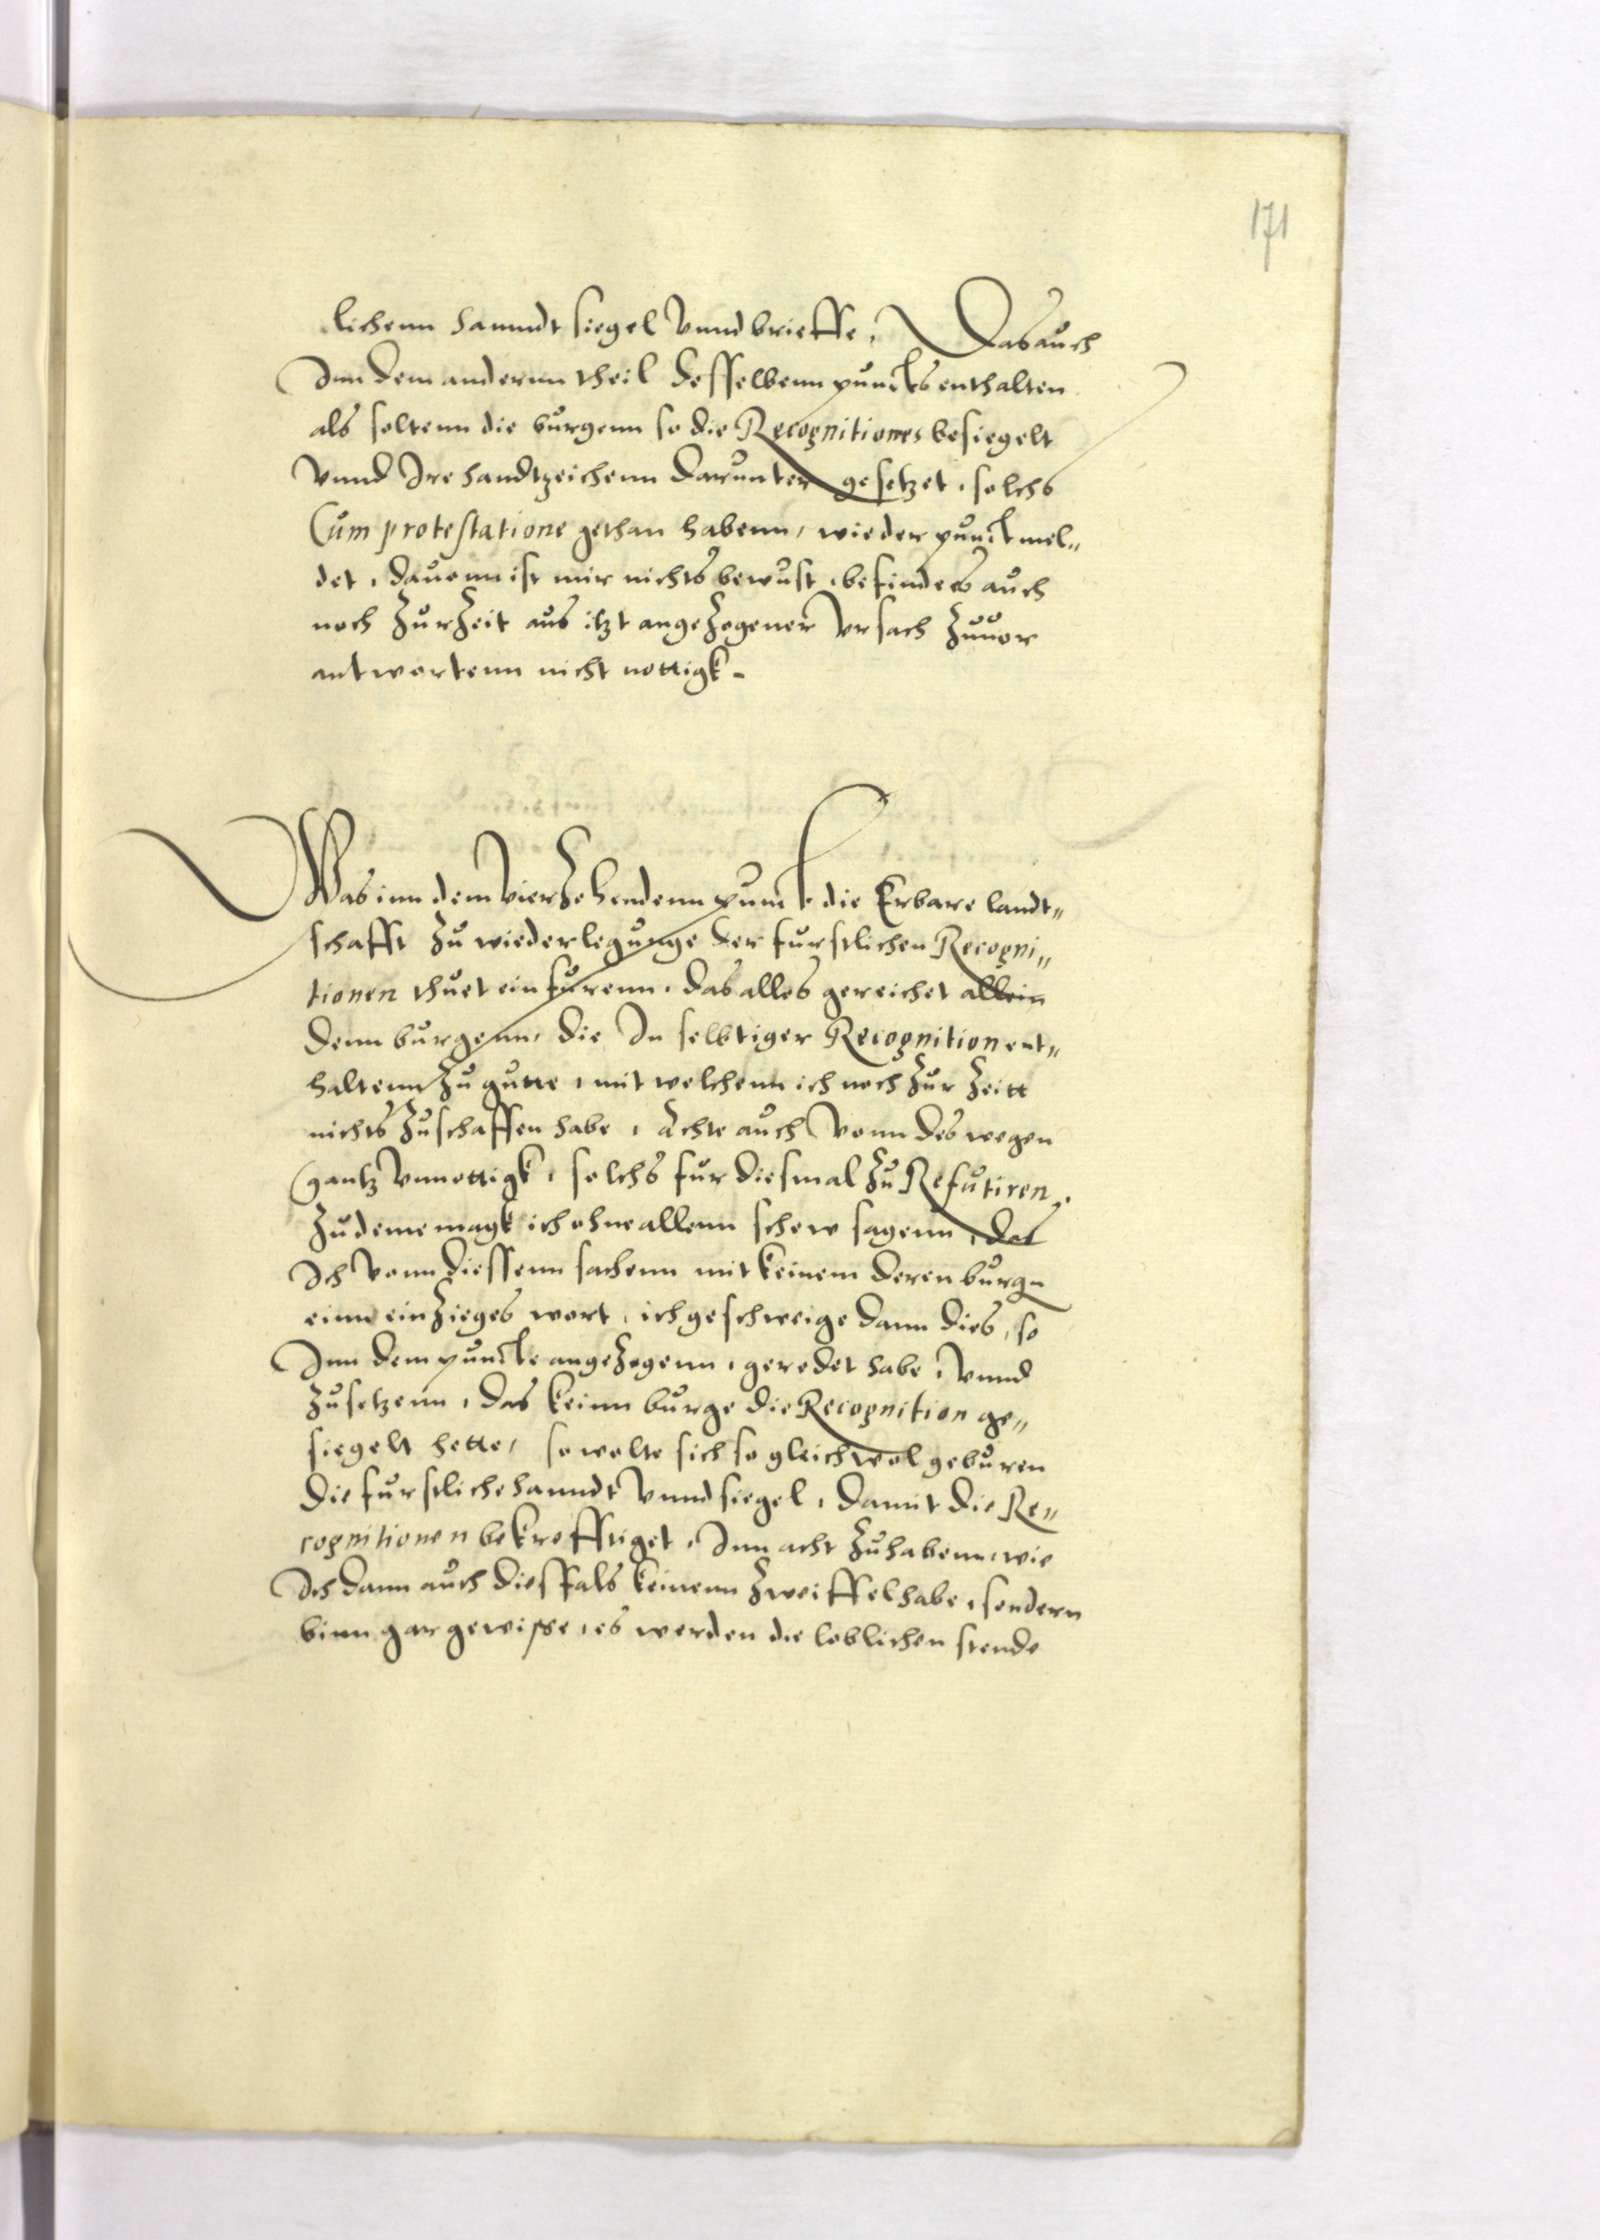 171
lichenn hanndt siegel vnnd brieffe, Das auch
Inn dem andernn theil desselbenn puncts enthalten
als soltenn die burgenn so die Recognitiones besiegelt
vnnd Ire handtzeichenn darunter gesetzet, solchs
Cum protestatione gethan habenn, wie der punct mel„
det, dauonn ist mir nichts bewust, befinde es auch
noch zur Zeit aus itzt angezogener vrsach zuuor
antwortenn nicht nottigk.
Was inn dem vierzehendenn punct die Erbare landt„
schafft zu wiederlegunge der furstlichen Recogni„
tionen thuet ein furenn, das alles gereichet allein
denn burgenn, die In selbtiger Recognition ent„
haltenn zu gutte, mit welchenn ich noch zur Zeitt
nichts zuschaffen habe, Achte auch vonn des wegen
gantz vnnottigk, solchs fur diesmal zu Refutiren,
zu deme magk ich ohne allenn schew sagenn, das
Ich vonn diessenn sachenn mit keinem deren burgn
einn einzieges wort, ich geschweige dann dies, so
Inn dem puncte angezogenn, geredet habe, vnnd
zusetzenn, das keinn burge die Recognition ge„
siegelt hette, so wolte sich so gleichwol geburen
die furstliche hanndt vnnd siegel, damit die Re„
cognitionen bekrefftiget, Inn acht zuhabenn, wie
Ich dann auch diessfals keinenn zweiffel habe, sondern
binn gar gewisse, es werden die loblichen stende